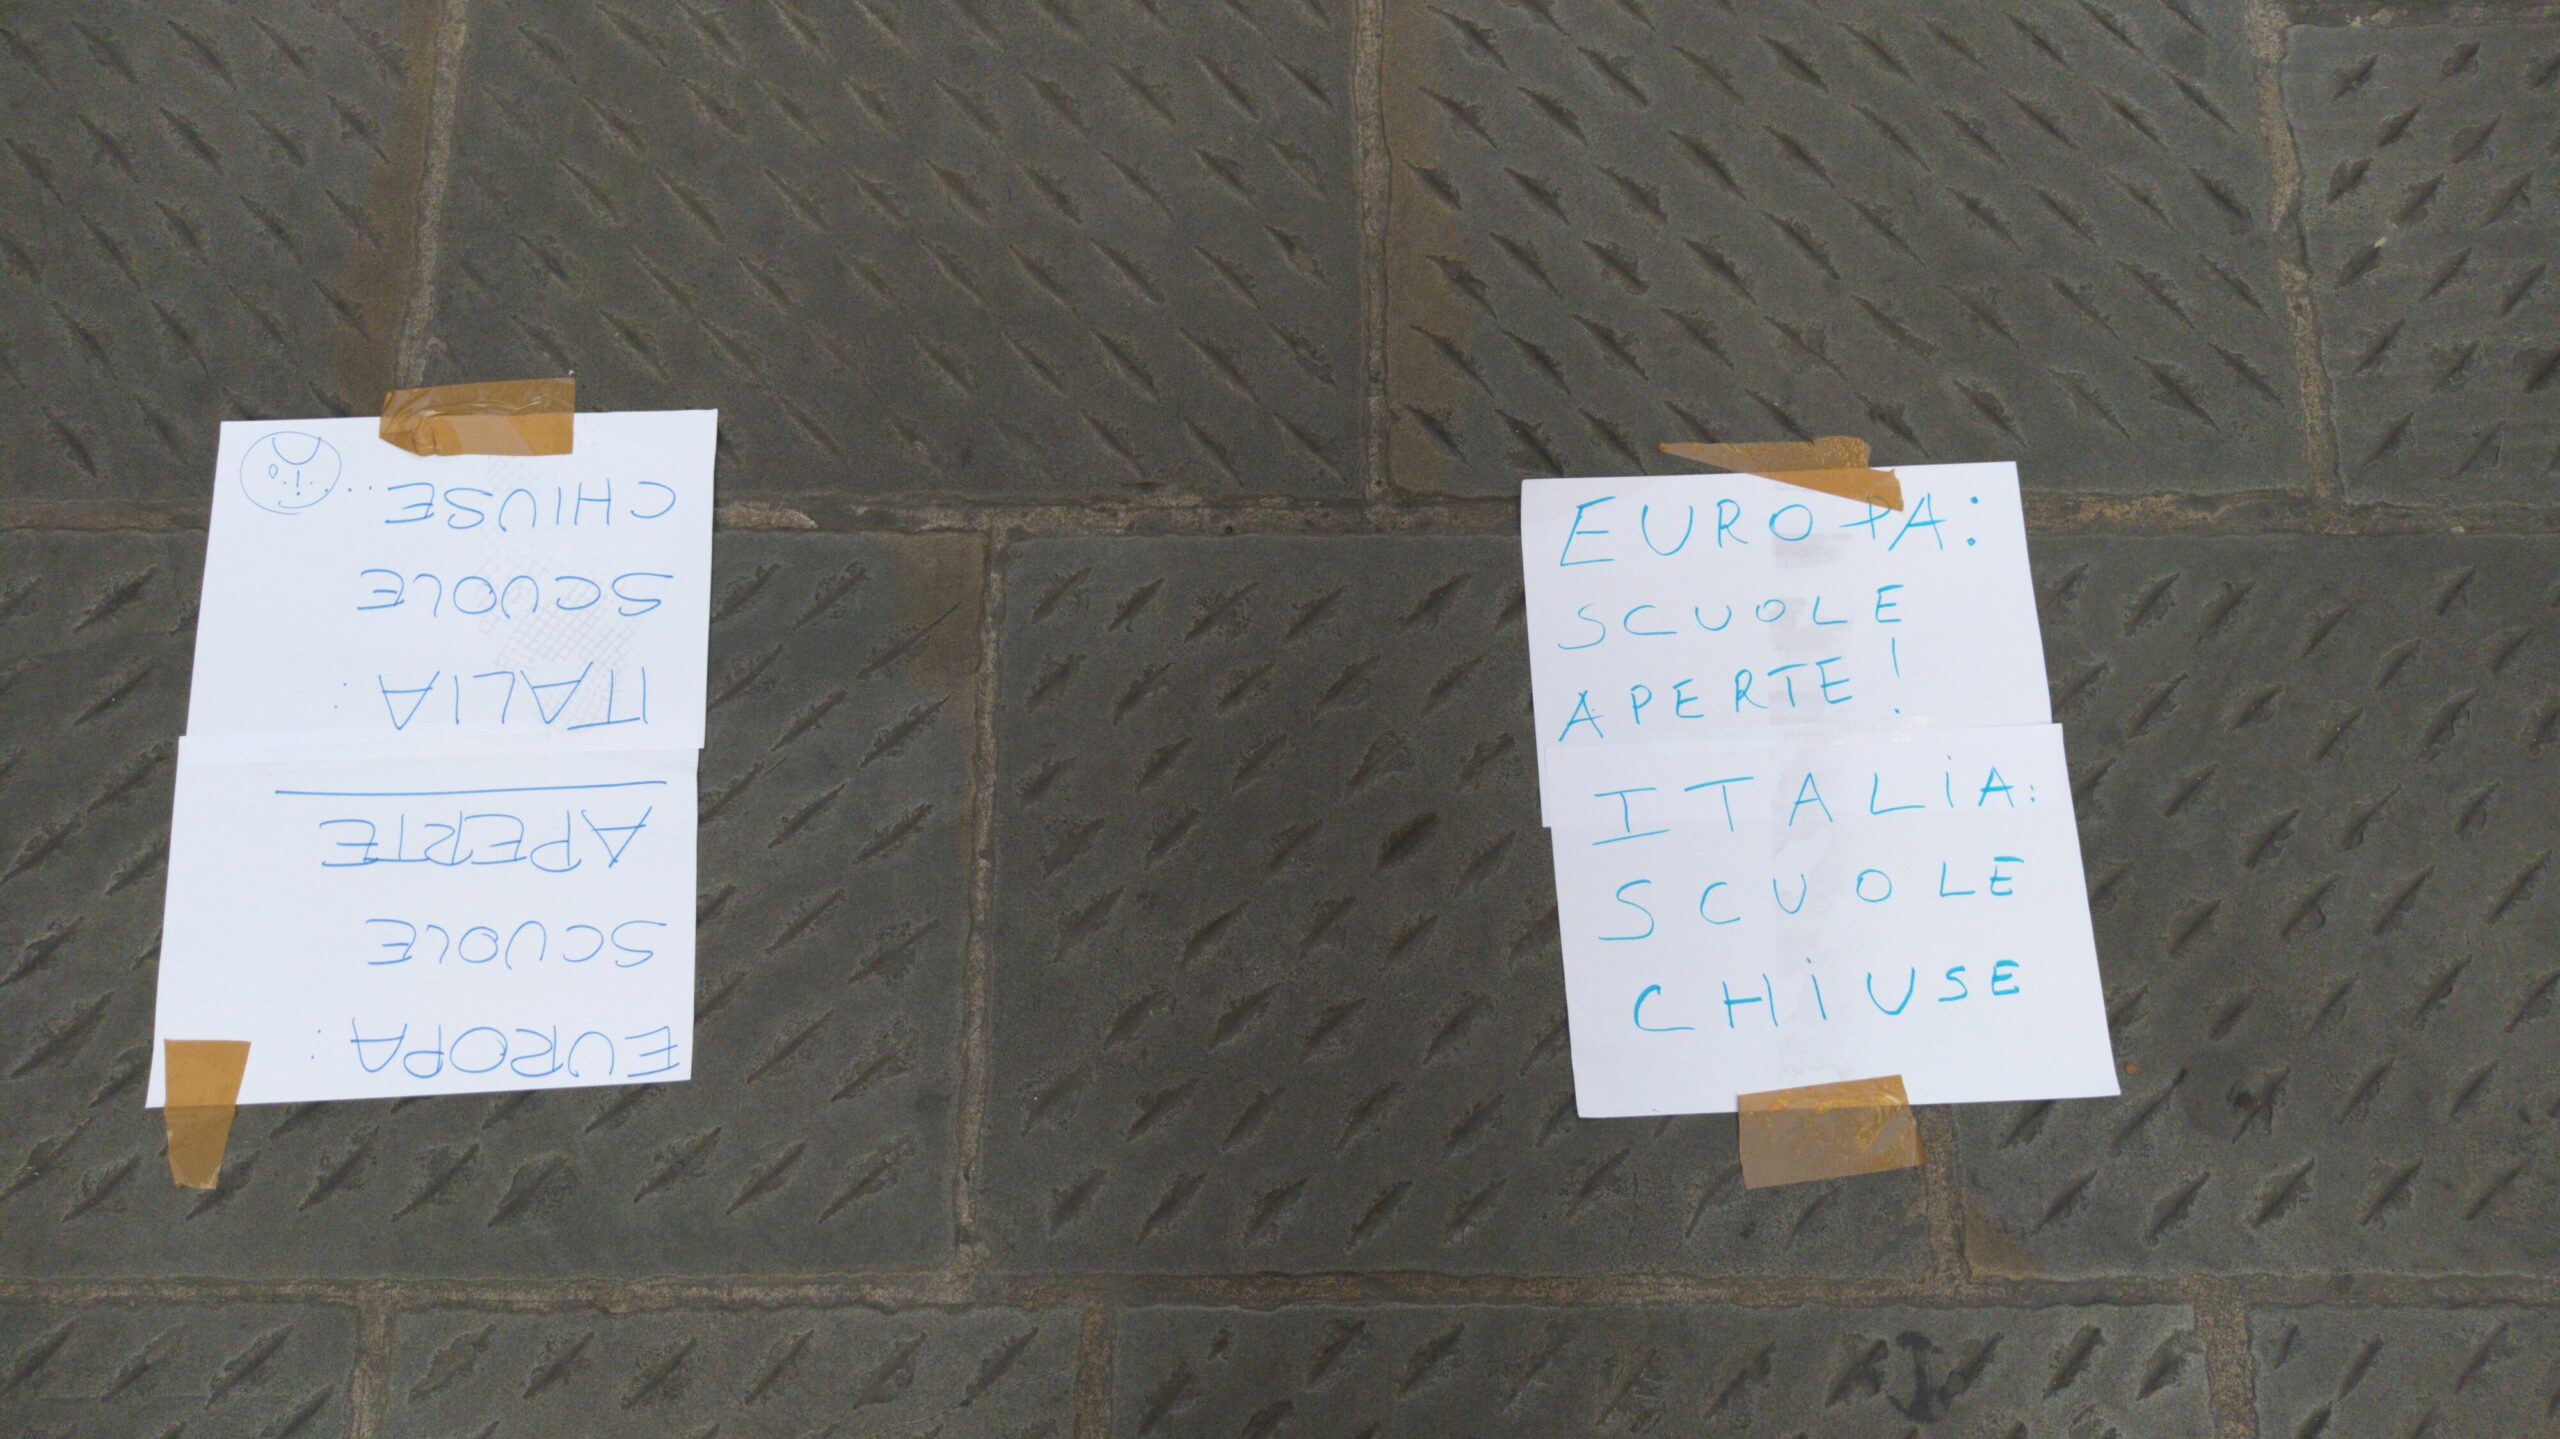 EUROPA:
SCUOLE
APERTE
ITALIA:
SCUOLE
CHIUSE...
EUROPA:
SCUOLE
APERTE!
ITALiA:
SCUOLE
CHiUSE